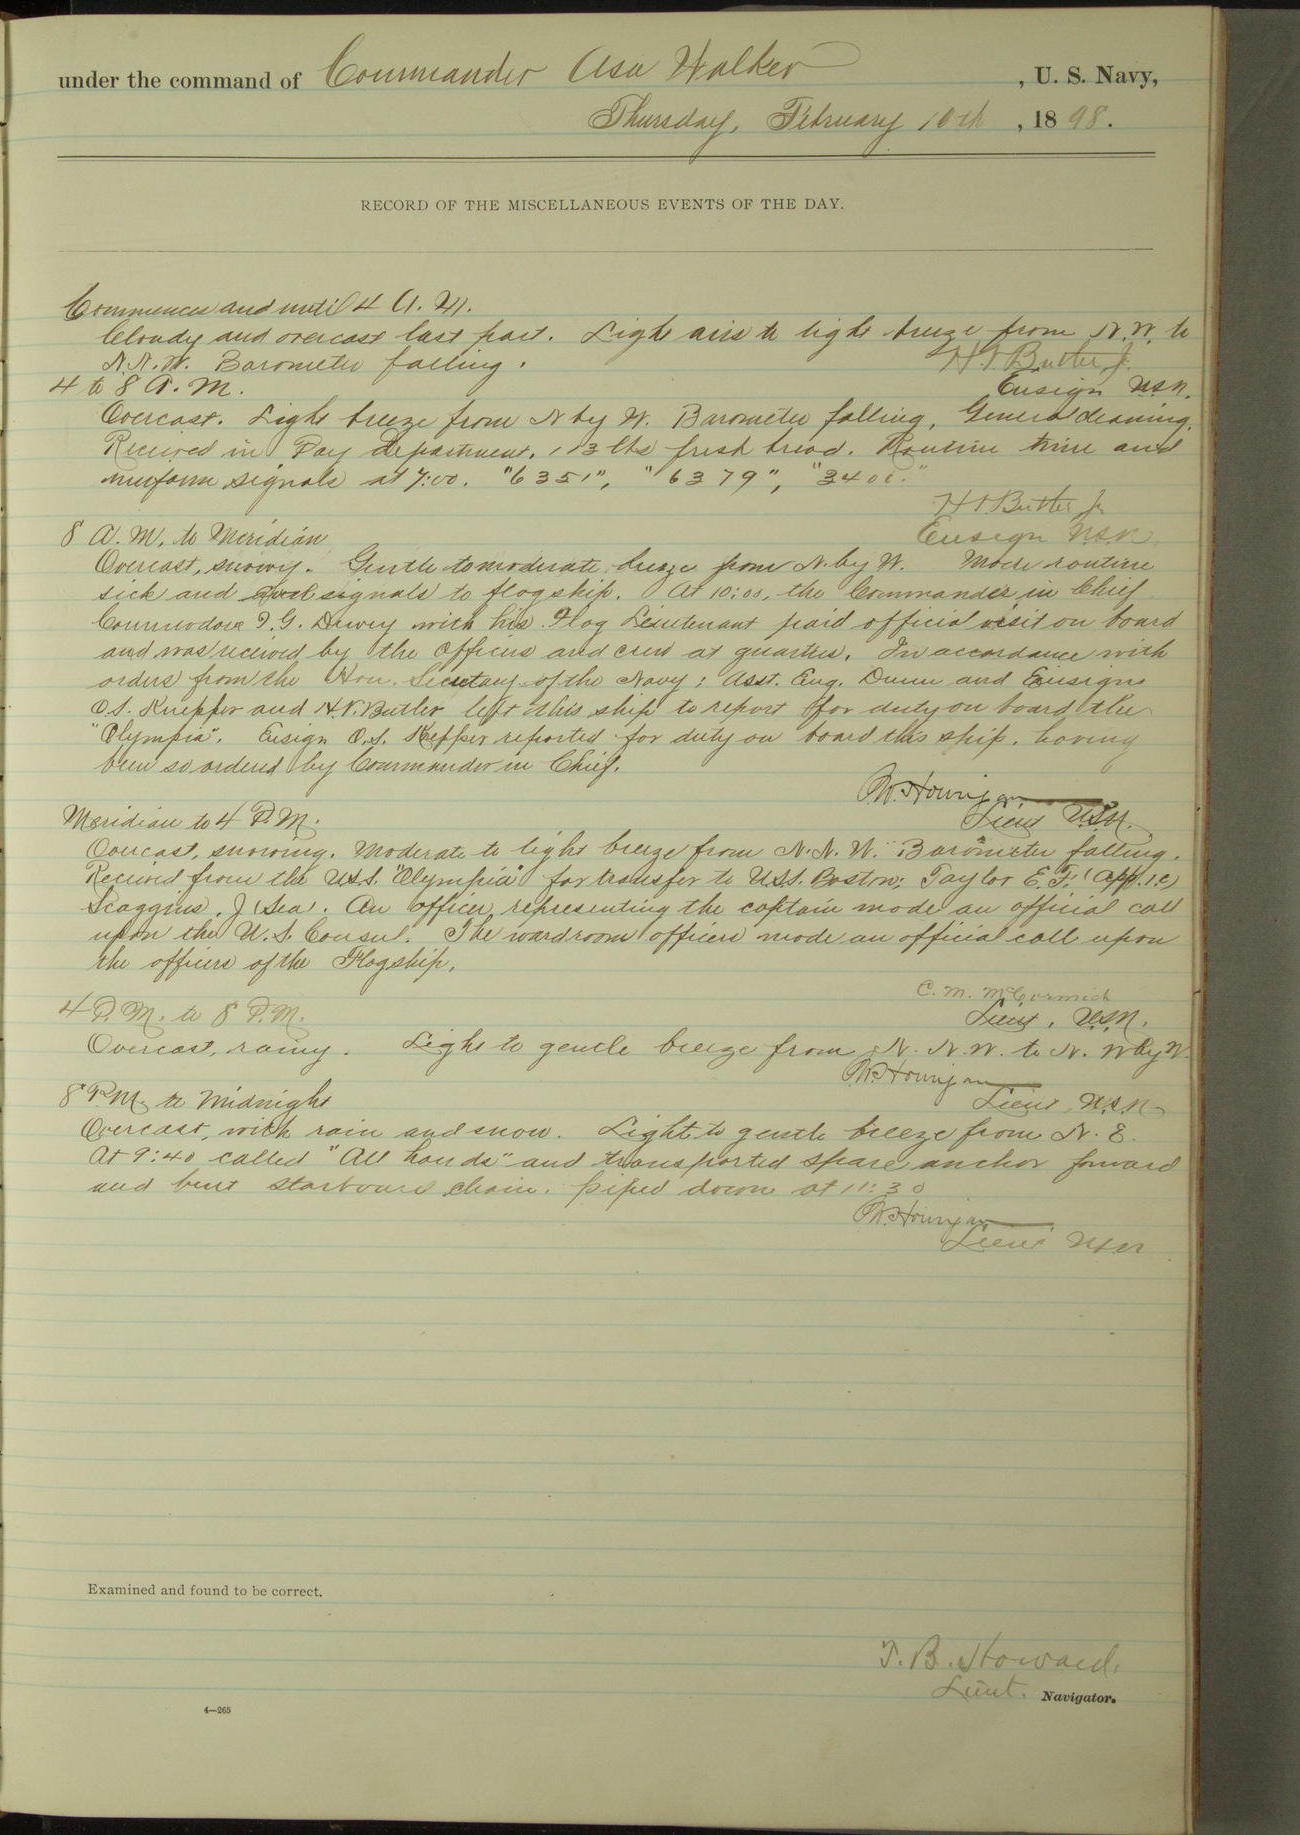 under the command of Commander Asa Walker , U. S. Navy,
Thursday, February 10th , 1898.
RECORD OF THE MISCELLANEOUS EVENTS OF THE DAY.
Commences and until 4 A. M.
Cloudy and overcast last part. Light airs to light breeze from N. W. to
N. N. W. Barometer falling.
H. V. Butler Jr.
4 to 8 A. M.
Ensign U.S.N.
Overcast. Light breeze from N by W. Barometer falling, General cleaning.
Received in Pay department, 113 lbs fresh bread. Routine time and
uniform signals at 7:00. "6351", "6379", "340
H V Butler Jr
Ensign U.S.N.
8 A. M. to Meridian
Overcast, snowy. Gentle to moderate breeze from N. by W. Made routine
sick and coal signals to flagship. At 10:00, the Commander in Chief
Commodore G. Dewey with his Flag Lieutenant paid official visit on board
and was received by the Officers and crew at quarters. In accordance with
orders from the Hon. Secretary of the Navy; Asst. Eng. Dunn and Ensigns
O. S. Knepper and H. V. Butler left this ship to report for duty on board the
"Olympia". Ensign O. S. Knepper reported for duty on board this ship, having
been so ordered by Commander in Chief.
P. W. Hourigan
Meridian to 4 P. M.
Lieut U.S.N.
Overcast, snowing. Moderate to light breeze from N. N. W. Barometer falling.
Received from the U.S.S. "Olympia" for transfer to U.S.S. Boston; Taylor E. F. (App. 1.c)
Scaggins, J (Sea). An officer, representing the captain made an official call
upon the U. S. Consul. The wardroom officers made an official call upon
the officers of the Flagship.
C. M. McCormick
4 P. M. to 8 P. M.
Lieut, U.S.N.
Overcast, rainy. Light to gentle breeze from N. N. W. to N. W by N.
P. W. Hourigan
8 P.M. to Midnight
Lieut, U.S.N.
Overcast, with rain and snow. Light to gentle breeze from N. E.
At 9:40 called "All hands" and transported spare anchor forward
and bent starboard chain. Piped down at 11:30
P. W. Hourigan
Lieut USN
Examined and found to be correct.
T. B. Howard,
Lieut. Navigator.
4—265